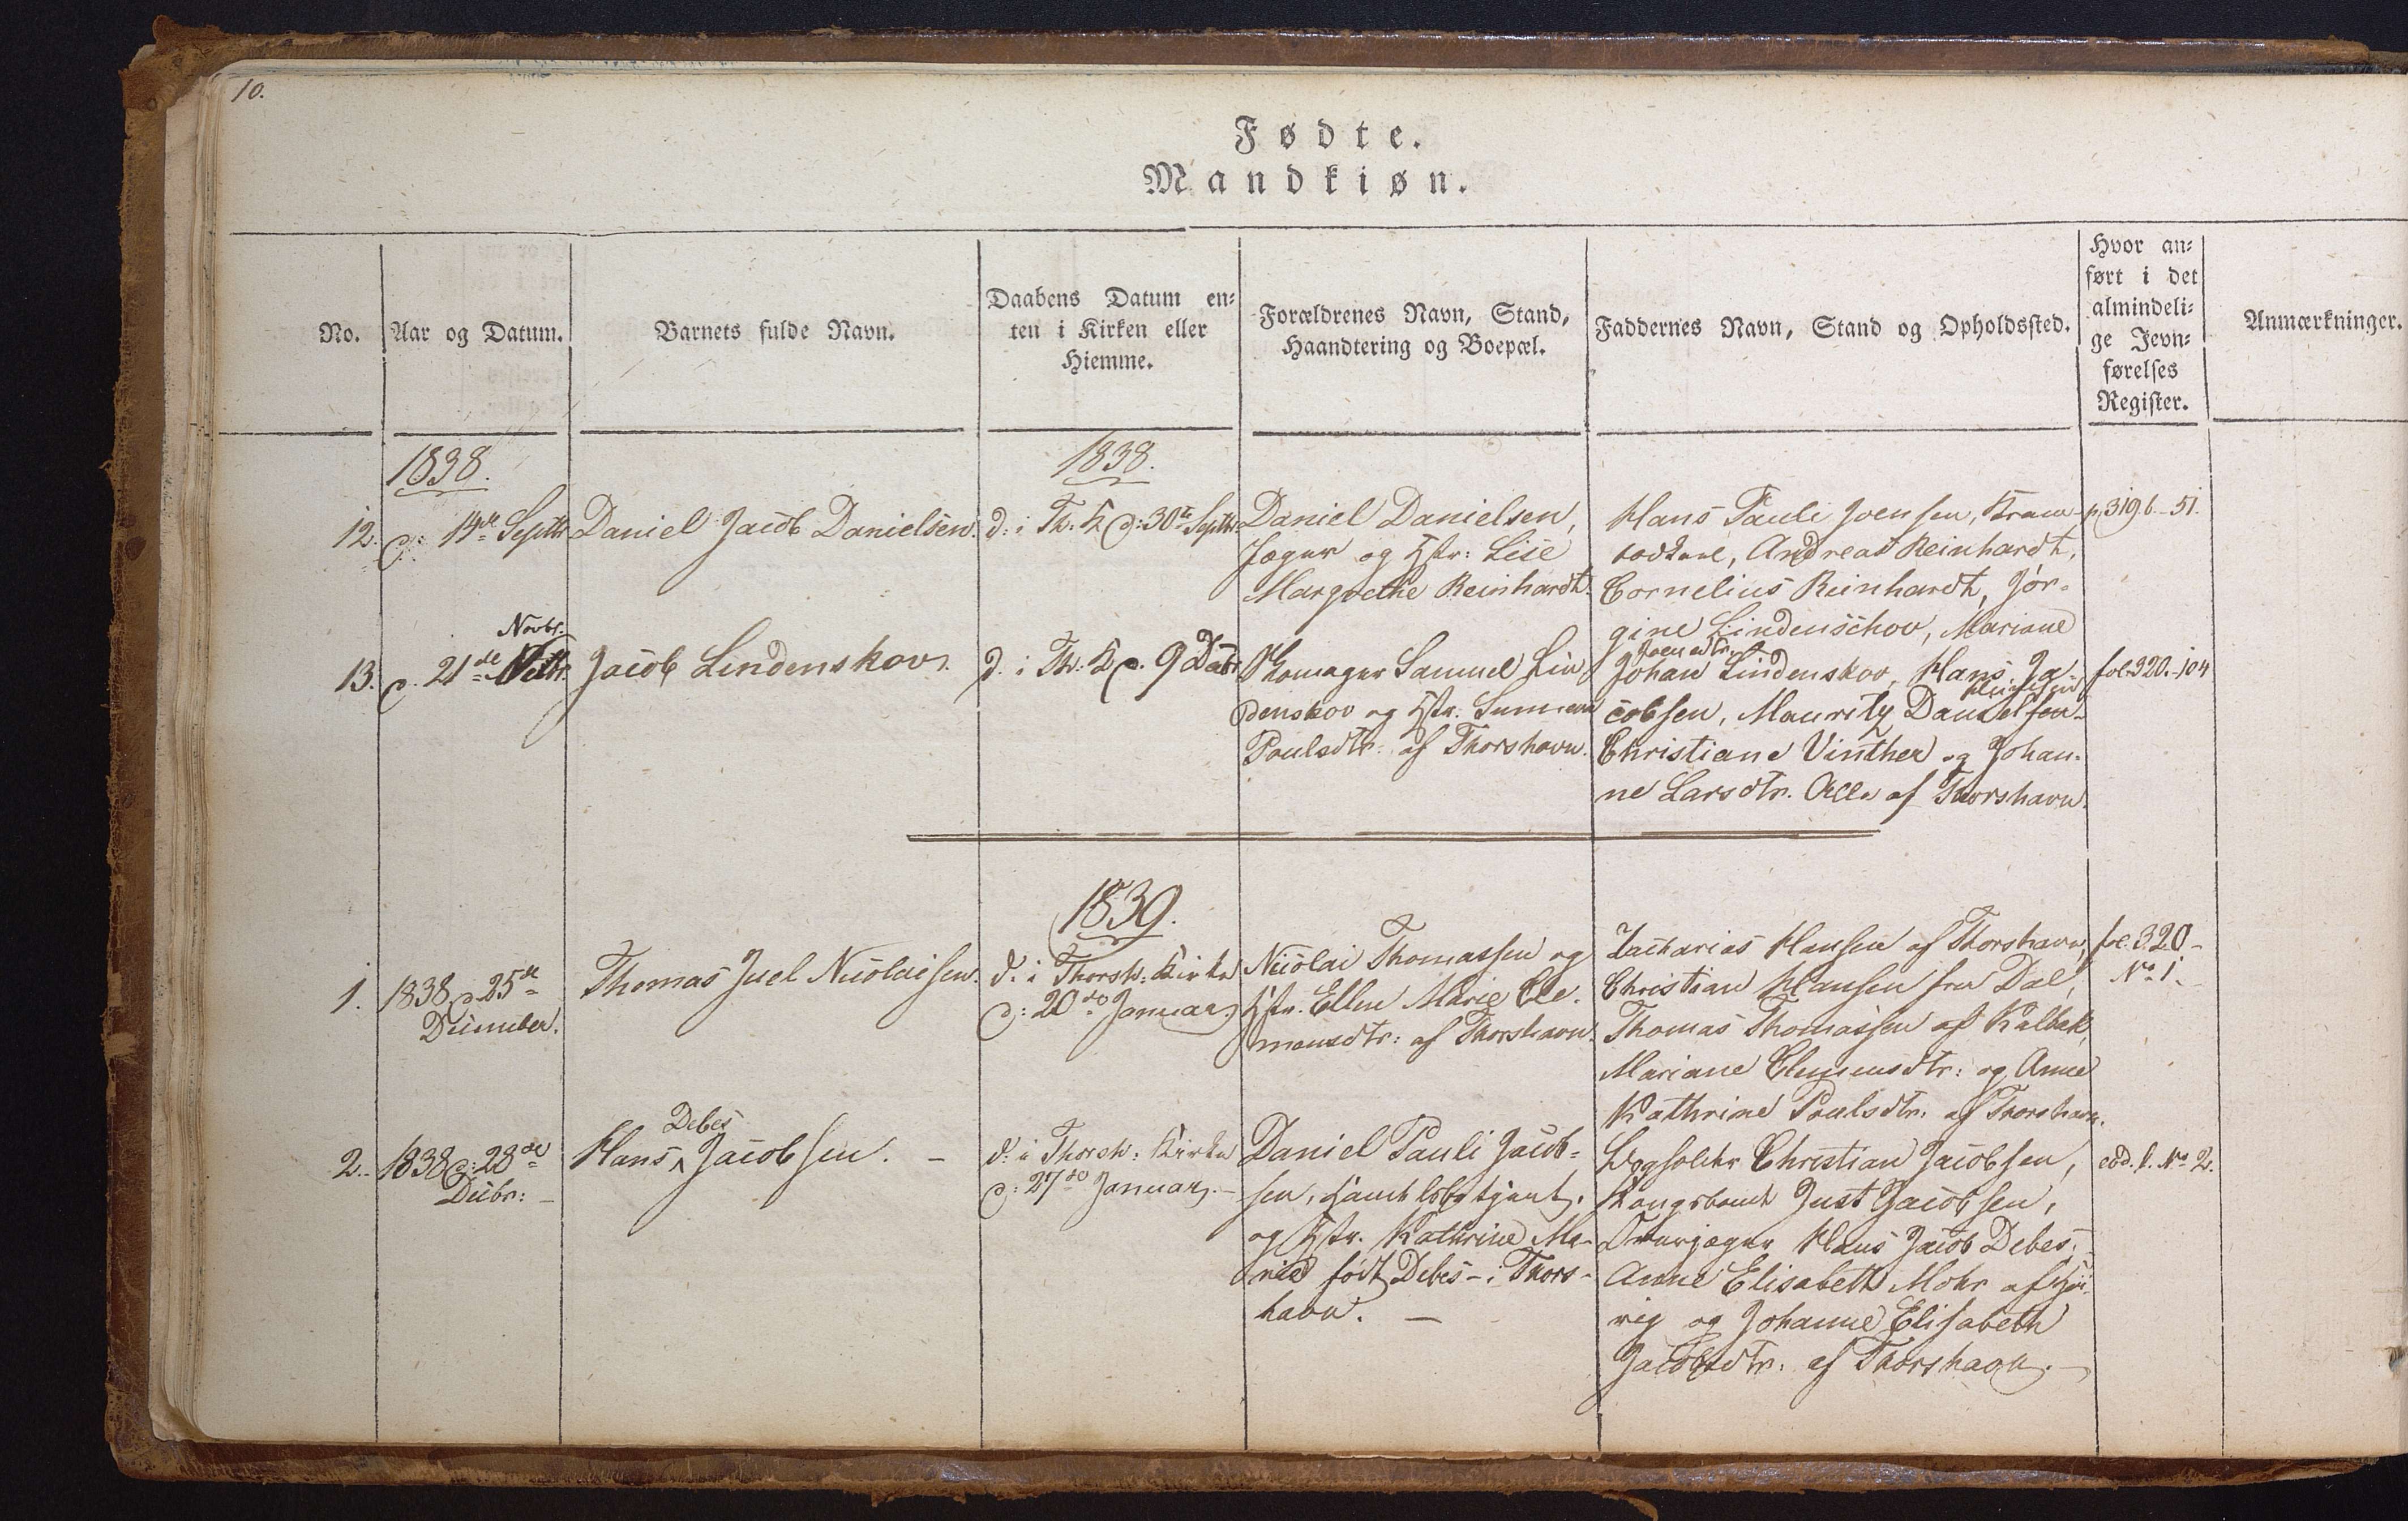 10.
Fødte.
Mandkiøn.
No.
Aar og Datum.
Barnets fulde Navn.
Daabens Datum en=
ten i Kirken eller
Hiemme.
Forældrenes Navn, Stand,
Haandtering og Boepæl.
Faddernes Navn, Stand og Opholdssted.
Hvor an=
ført i det
almindeli=
ge Jevn=
førelses
Register.
Anmærkninger.
1838.
1838.
12.
d. 14de Septbr
Daniel Jacob Danielsen.
d: i Th. K d: 30te Septbr.
Daniel Danielsen,
Jæger og Hstr: Lise
Margrethe Reinhardt.
Hans Pauli Joensen,
Andreas Reinhardt,
Cornelius Reinhardt, Jör-
gine Lindenschov, Mariane
Joensdtr.
p 319 b - 51.
13.
Novbr.
d. 21de
Jacob Lindenskov.
d. i Th: K d. 9 Decbr.
Samuel Lin
denskov og Hstr.
Poulsdtr: af Thorshavn.
Johan Lindenskov, Hans Ja-
cobsen, Mauritz Danielsen
Christiane Vinther og Johan-
ne Larsdtr. Alle af Thorshavn.
fol. 320. - 104
1839.
1.
1838 d. 25de
December.
Thomas Juel Nicolaisen.
d. i Thorsh. Kirke
d: 20de Januar.
Nicolai Thomassen og
Hstr. Ellen Marie Cle-
mensdtr: af Thorshavn.
Zacharias Hansen af Thorshavn,
Christian Hansen fra Dal,
Thomas Thomassen af Kalbak,
Mariane Clemensdtr: og Anne
Kathrine Poulsdtr. af Thorshavn.
fol. 320 -
No 1.
2.
1838 d: 28de
Decbr: -
Debes
Hans Jacobsen. -
d: i Thorsh: Kirke
d: 27de Januar. -
Daniel Pauli Jacob-
sen,
og Hstr. Kathrine Ma-
rie født Debes - i Thors-
havn. -
Christian Jacobsen,
Kongsbonde Just Jacobsen,
Hans Jacob Debes,
Anne Elisabeth Mohr af Hoi-
vig og Johanne Elisabeth
Jacobsdtr. af Thorshavn. -
eod. f. No 2.